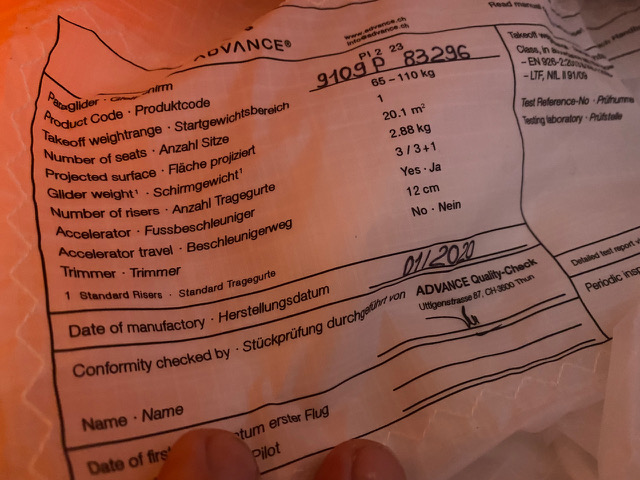 Read manual
www.advance.ch
info@advance.ch
ADVANCE®
Paraglider · Gleitschirm PI 2 23
Product Code · Produktcode 9109 P 83296
Takeoff weightrange · Startgewichtsbereich 65 – 110 kg
Number of seats · Anzahl Sitze 1
Projected surface · Fläche projiziert 20.1 m²
Glider weight¹ · Schirmgewicht¹ 2.88 kg
Number of risers · Anzahl Tragegurte 3 / 3+1
Accelerator · Fussbeschleuniger Yes · Ja
Accelerator travel · Beschleunigerweg 12 cm
Trimmer · Trimmer No · Nein
1 Standard Risers · Standard Tragegurte
Date of manufactory · Herstellungsdatum 01/2020
Conformity checked by · Stückprüfung durchgeführt von ADVANCE Quality-Check
Uttigenstrasse 87, CH 3600 Thun
Name · Name
Date of firs tum erster Flug
Pilot
Takeoff
Class, in
– EN 926-2:20
– LTF, NfL II 91/09
Test Reference-No · Prüfnumm
Testing laboratory · Prüfstelle
Detailed test report
Periodic insp